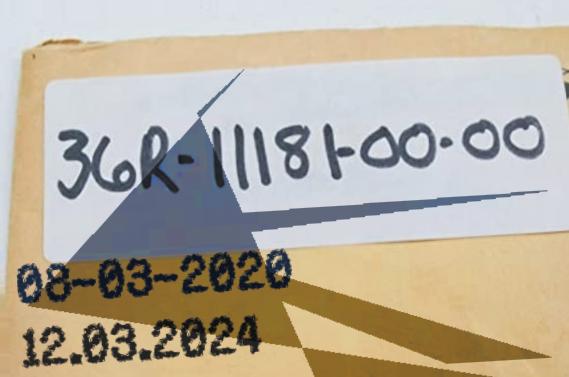 36R-11181-00-00
08-03-2020
12.03.2024